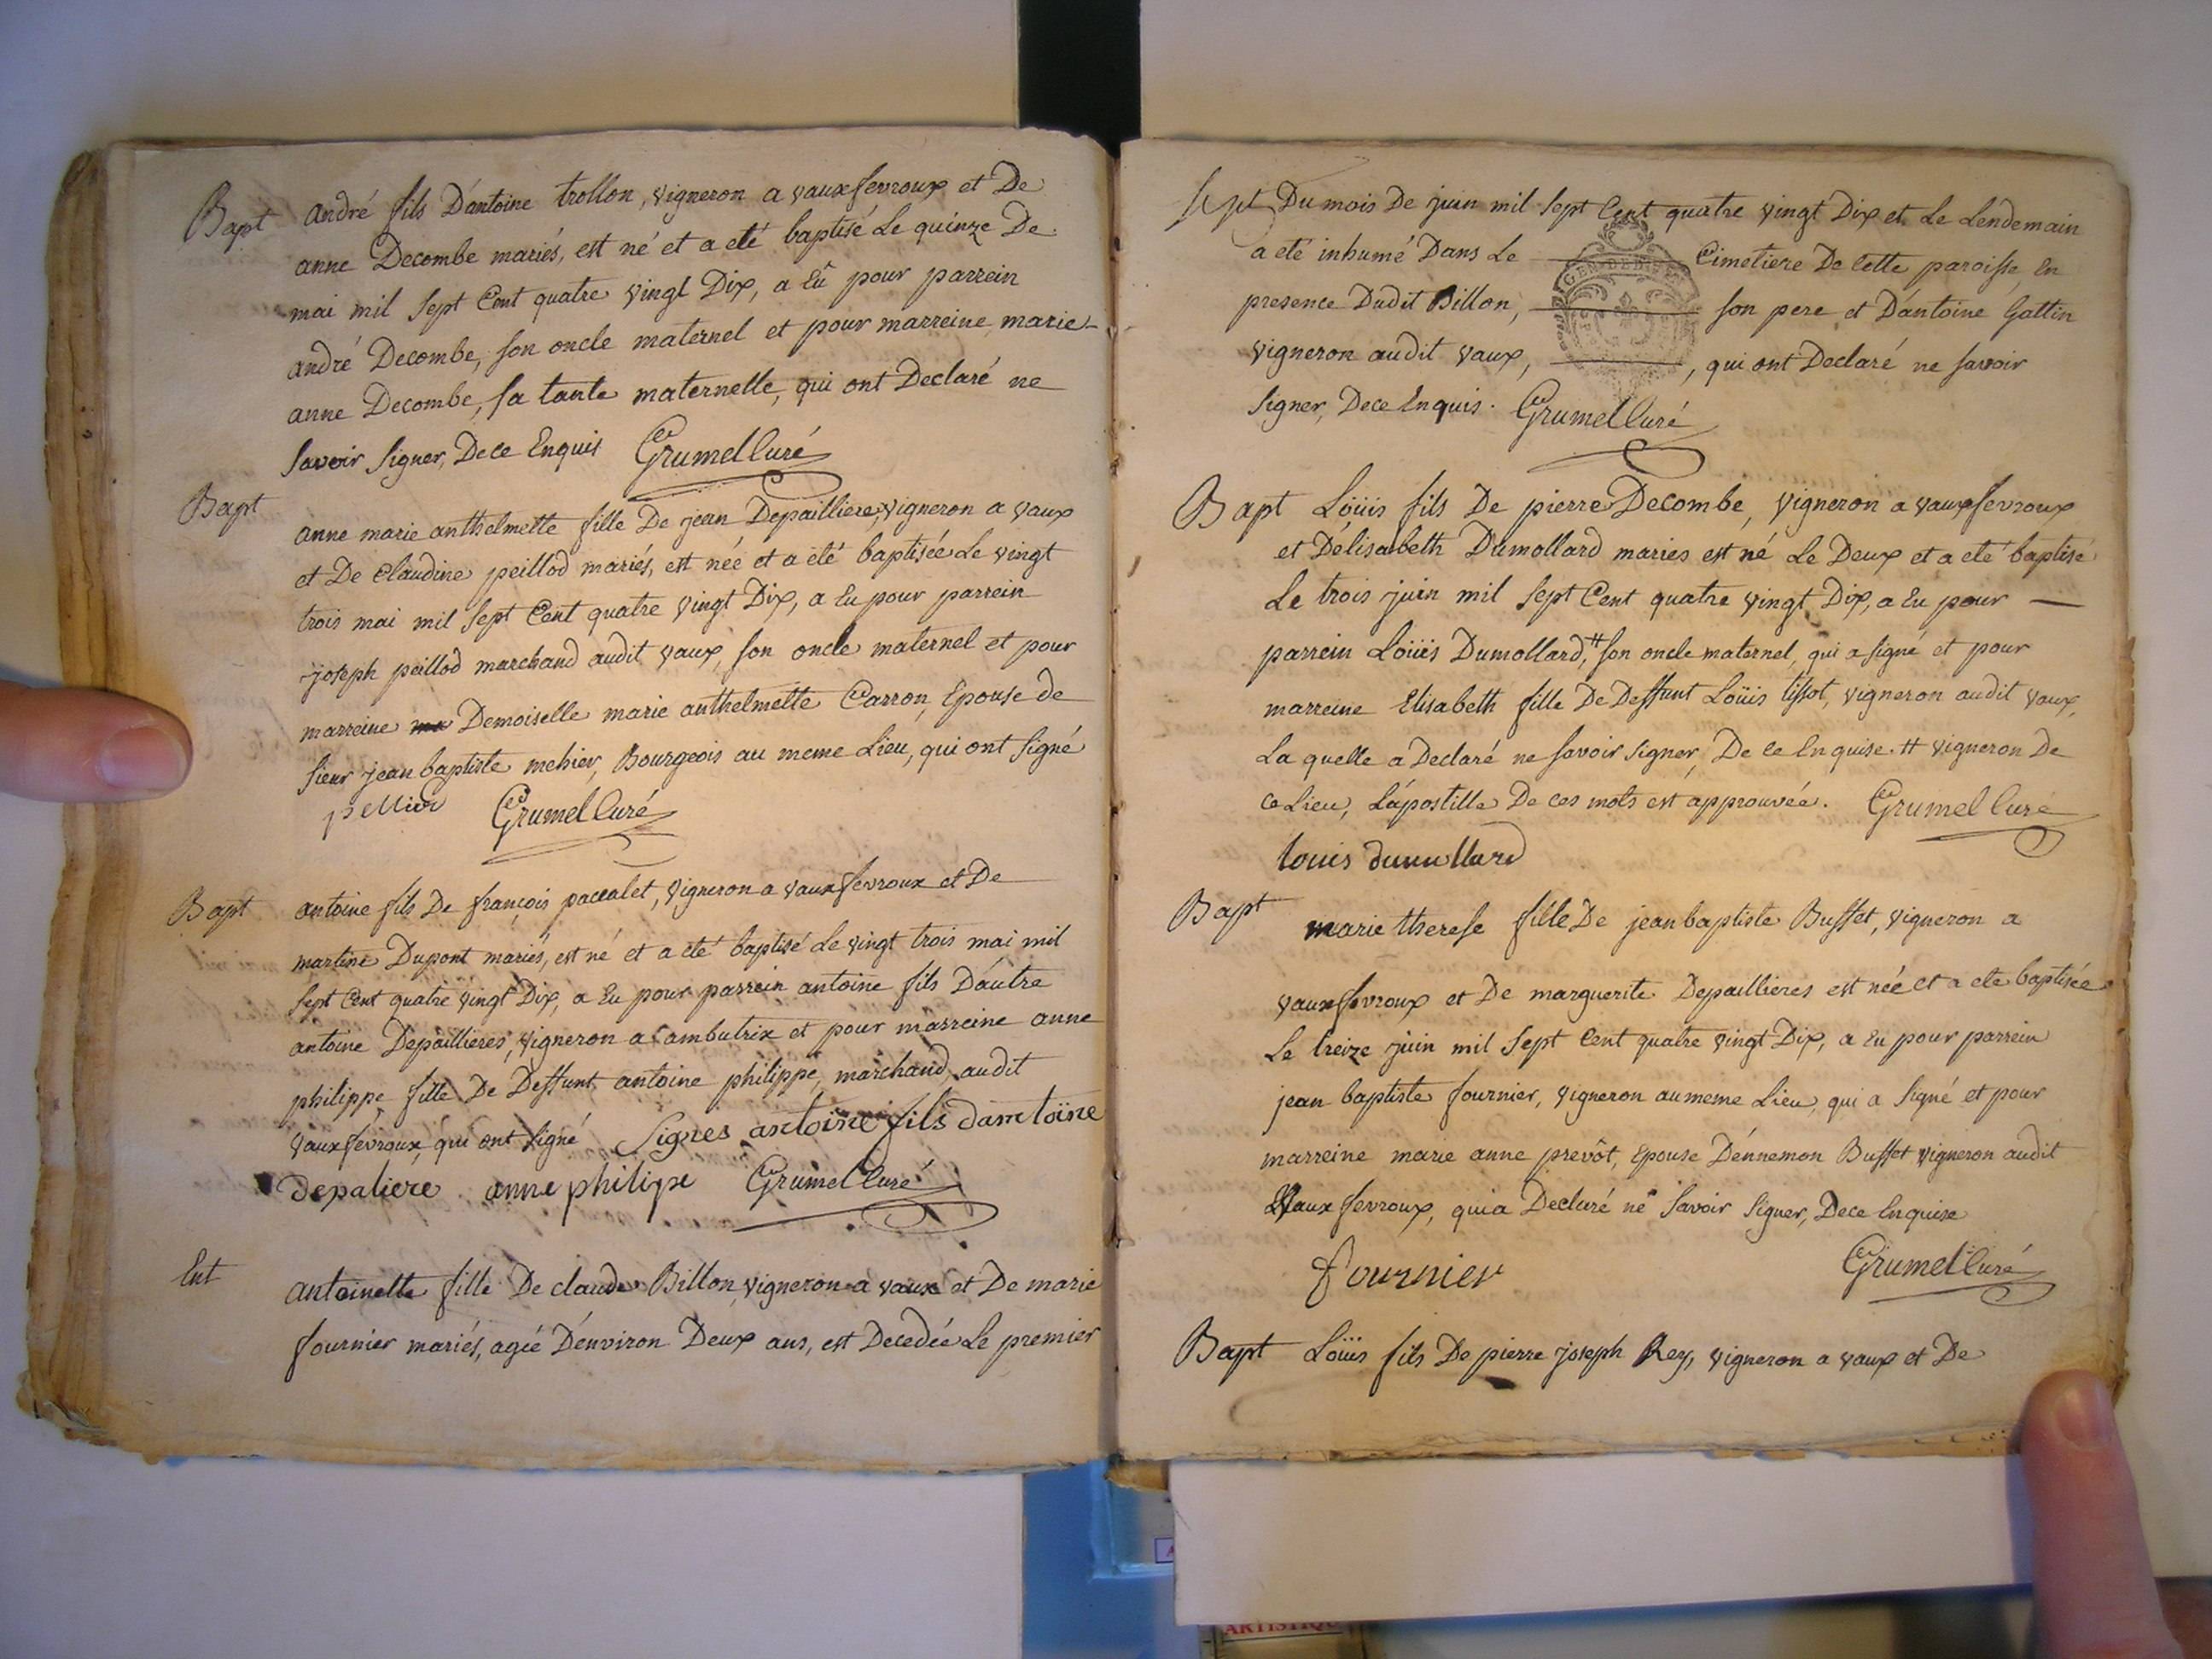 Bapt andré fils D'antoine trollon, vigneron a vauxfevroux et De
anne Decombe mariés, est né et a eté baptisé Le quinze De
mai mil Sept Cent quatre vingt Dix, a Eû pour parrein
andré Decombe, son oncle maternel et pour marreine marie-
anne Decombe, sa tante maternelle, qui ont Declaré ne
savoir signer, De ce Enquis Grumel Curé
Bapt
anne marie anthelmette fille De jean Depailliere, vigneron a vaux
et De Claudine peillod mariés, est née et a eté baptisée Le vingt
trois mai mil sept Cent quatre vingt Dix, a Eu pour parrein
joseph peillod marchand audit vaux, son oncle maternel et pour
marreine Demoiselle marie anthelmette Carron, Epouse de
sieur jean baptiste mehier, Bourgeois au meme Lieu, qui ont signé
Grumel Curé
Bapt antoine fils De françois paccalet, vigneron a vauxfevroux et De
martine Dupont mariés, est né et a eté baptisé Le vingt trois mai mil
sept Cent quatre vingt Dix, a Eu pour parrein antoine fils D'autre
antoine Depaillieres, vigneron a ambutrix et pour marreine anne
philippe, fille De Deffunt antoine philippe, marchand, audit
vauxfevroux, qui ont signé Signes antoine fils dantoine
depaliere anne philipe Grumel Curé
Ent antoinette fille De claude Billon, vigneron a vaux et De marie
fournier mariés, agée D'environ Deux ans, est Decedée Le premier
Sept Du mois De juin mil sept Cent quatre vingt Dix et Le Lendemain
a eté inhumé Dans Le Cimetiere De Cette paroisse, En
presence Dudit Billon, son pere et D'antoine Gattin
vigneron audit vaux, , qui ont Declaré ne savoir
signer, De ce Enquis. Grumel Curé
Bapt Loüis fils De pierre Decombe, vigneron a vauxfevroux
et D'elisabeth Dumollard maries est né Le Deux et a eté baptisé
Le trois juin mil sept Cent quatre vingt Dix, a Eu pour —
parrein Loüis Dumollard, # son oncle maternel, qui a signé et pour
marreine Elisabeth fille De Deffunt Loüis tissot, vigneron audit vaux,
La quelle a Declaré ne savoir signer, De ce Enquise. # vigneron De
ce Lieu, L'apostille De ces mots est approuvée. Grumel Curé
louis dumollard
Bapt
marie therese fille De jean baptiste Buffet, vigneron a
vauxfevroux et De marguerite Depaillieres est née et a ete baptisée
Le treize juin mil sept Cent quatre vingt Dix, a Eu pour parrein
jean baptiste fournier, vigneron au meme Lieu, qui a signé et pour
marreine marie anne prevôt, Epouse D'ennemon Buffet vigneron audit
Vaux fevroux, qui a Declaré ne savoir signer, De ce Enquise
fournier Grumel Curé
Bapt Loüis fils De pierre joseph Rey, vigneron a vaux et De
ARTISTIQU